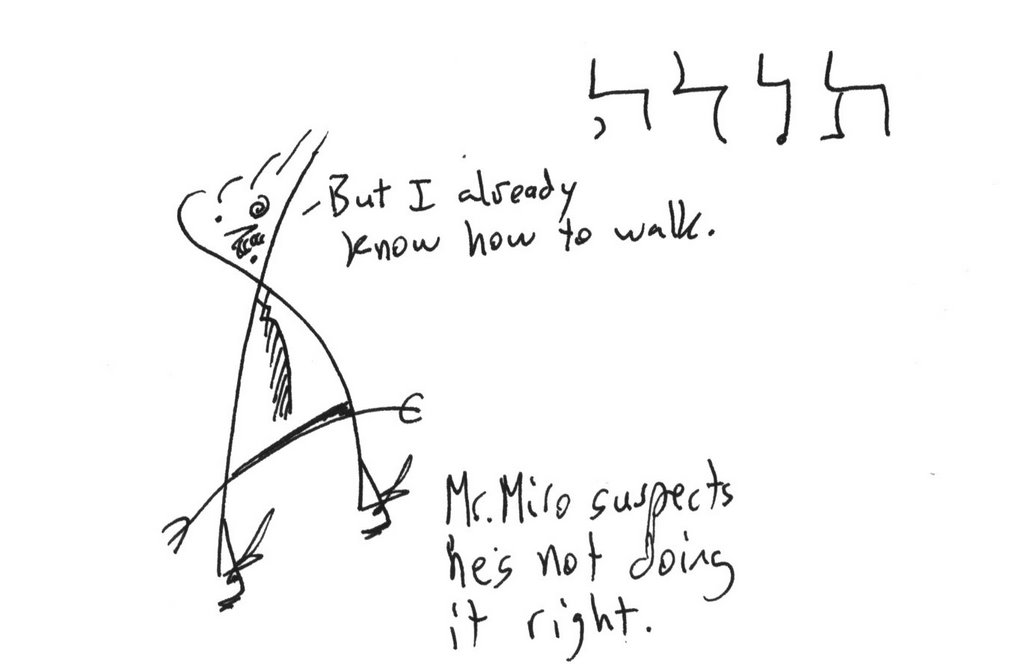 תורה
But I already
know how to walk.
Mr. Miro suspects
he's not doing
it right.